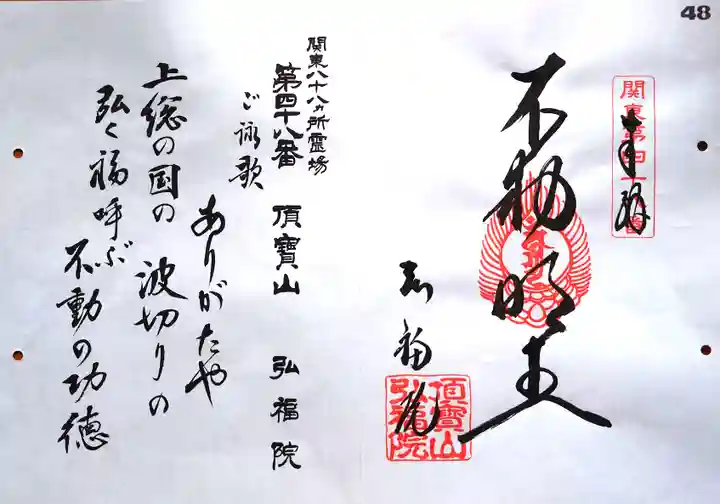 48
関東第四十八番
奉拝
不動明王
弘福院
頂寶山
弘福院
関東八十八ヵ所霊場
第四十八番 頂寶山 弘福院
ご詠歌
ありがたや
上総の国の 波切りの
弘く福呼ぶ 不動の功徳